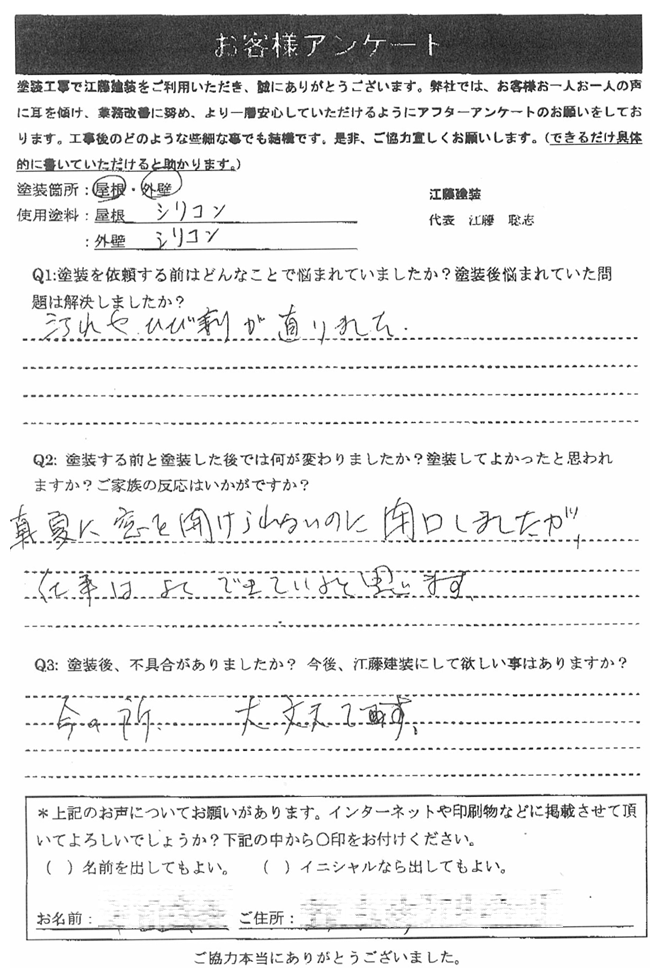 お客様アンケート
塗装工事で江藤建装をご利用いただき、誠にありがとうございます。弊社では、お客様お一人お一人の声
に耳を傾け、業務改善に努め、より一層安心していただけるようにアフターアンケートのお願いをしてお
ります。工事後のどのような些細な事でも結構です。是非、ご協力宜しくお願いします。(できるだけ具体
的に書いていただけると助かります。)
塗装箇所：屋根・外壁
江藤建装
使用塗料：屋根 シリコン
代表 江藤 聡志
：外壁 シリコン
Q1:塗装を依頼する前はどんなことで悩まれていましたか？塗装後悩まれていた問
題は解決しましたか？
汚れやひび割が直りました.
Q2: 塗装する前と塗装した後では何が変わりましたか？塗装してよかったと思われ
ますか？ご家族の反応はいかがですか？
真夏に窓を開けられないのに閉口しましたが、
仕事はよくできていると思います。
Q3: 塗装後、不具合がありましたか？ 今後、江藤建装にして欲しい事はありますか？
今の所、大丈夫です。
＊上記のお声についてお願いがあります。インターネットや印刷物などに掲載させて頂
いてよろしいでしょうか？下記の中から〇印をお付けください。
（ ）名前を出してもよい。 （ ）イニシャルなら出してもよい。
お名前： ご住所：
ご協力本当にありがとうございました。